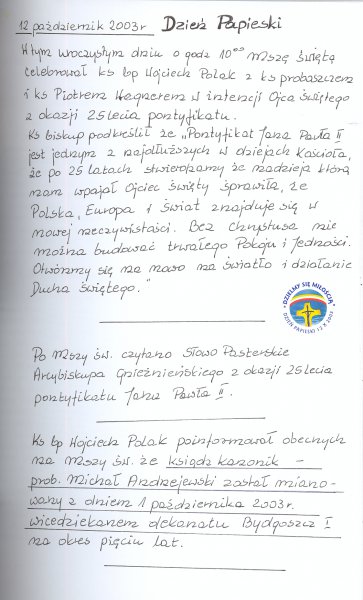 12 październik 2003 r Dzień Papieski
W tym uroczystym dniu o godz 10°° Mszę świętą
celebrował ks bp Wojciech Polak z ks proboszczem
i ks Piotrem Wegnerem w intencji Ojca świętego
z okazji 25 lecia pontyfikatu.
Ks biskup podkreślił że „Pontyfikat Jana Pawła II
jest jednym z najdłuższych w dziejach Kościoła,
że po 25 latach stwierdzamy że nadzieja którą
nam wpajał Ojciec święty sprawiła, że
Polska, Europa i świat znajduje się w
nowej rzeczywistości. Bez Chrystusa nie
można budować trwałego Pokoju i Jedności.
Otwórzmy się na nowo na światło i działanie
Ducha świętego."
DZIELMY SIĘ MIŁOŚCIĄ
DZIEŃ PAPIESKI 12 X 2003
Po Mszy św. czytano Słowo Pasterskie
Arcybiskupa Gnieźnieńskiego z okazji 25 lecia
pontyfikatu Jana Pawła II.
Ks bp Wojciech Polak poinformował obecnych
na Mszy św. że ksiądz kanonik –
prob. Michał Andrzejewski został miano-
wany z dniem 1 października 2003 r.
wicedziekanem dekanatu Bydgoszcz I
na okres pięciu lat.